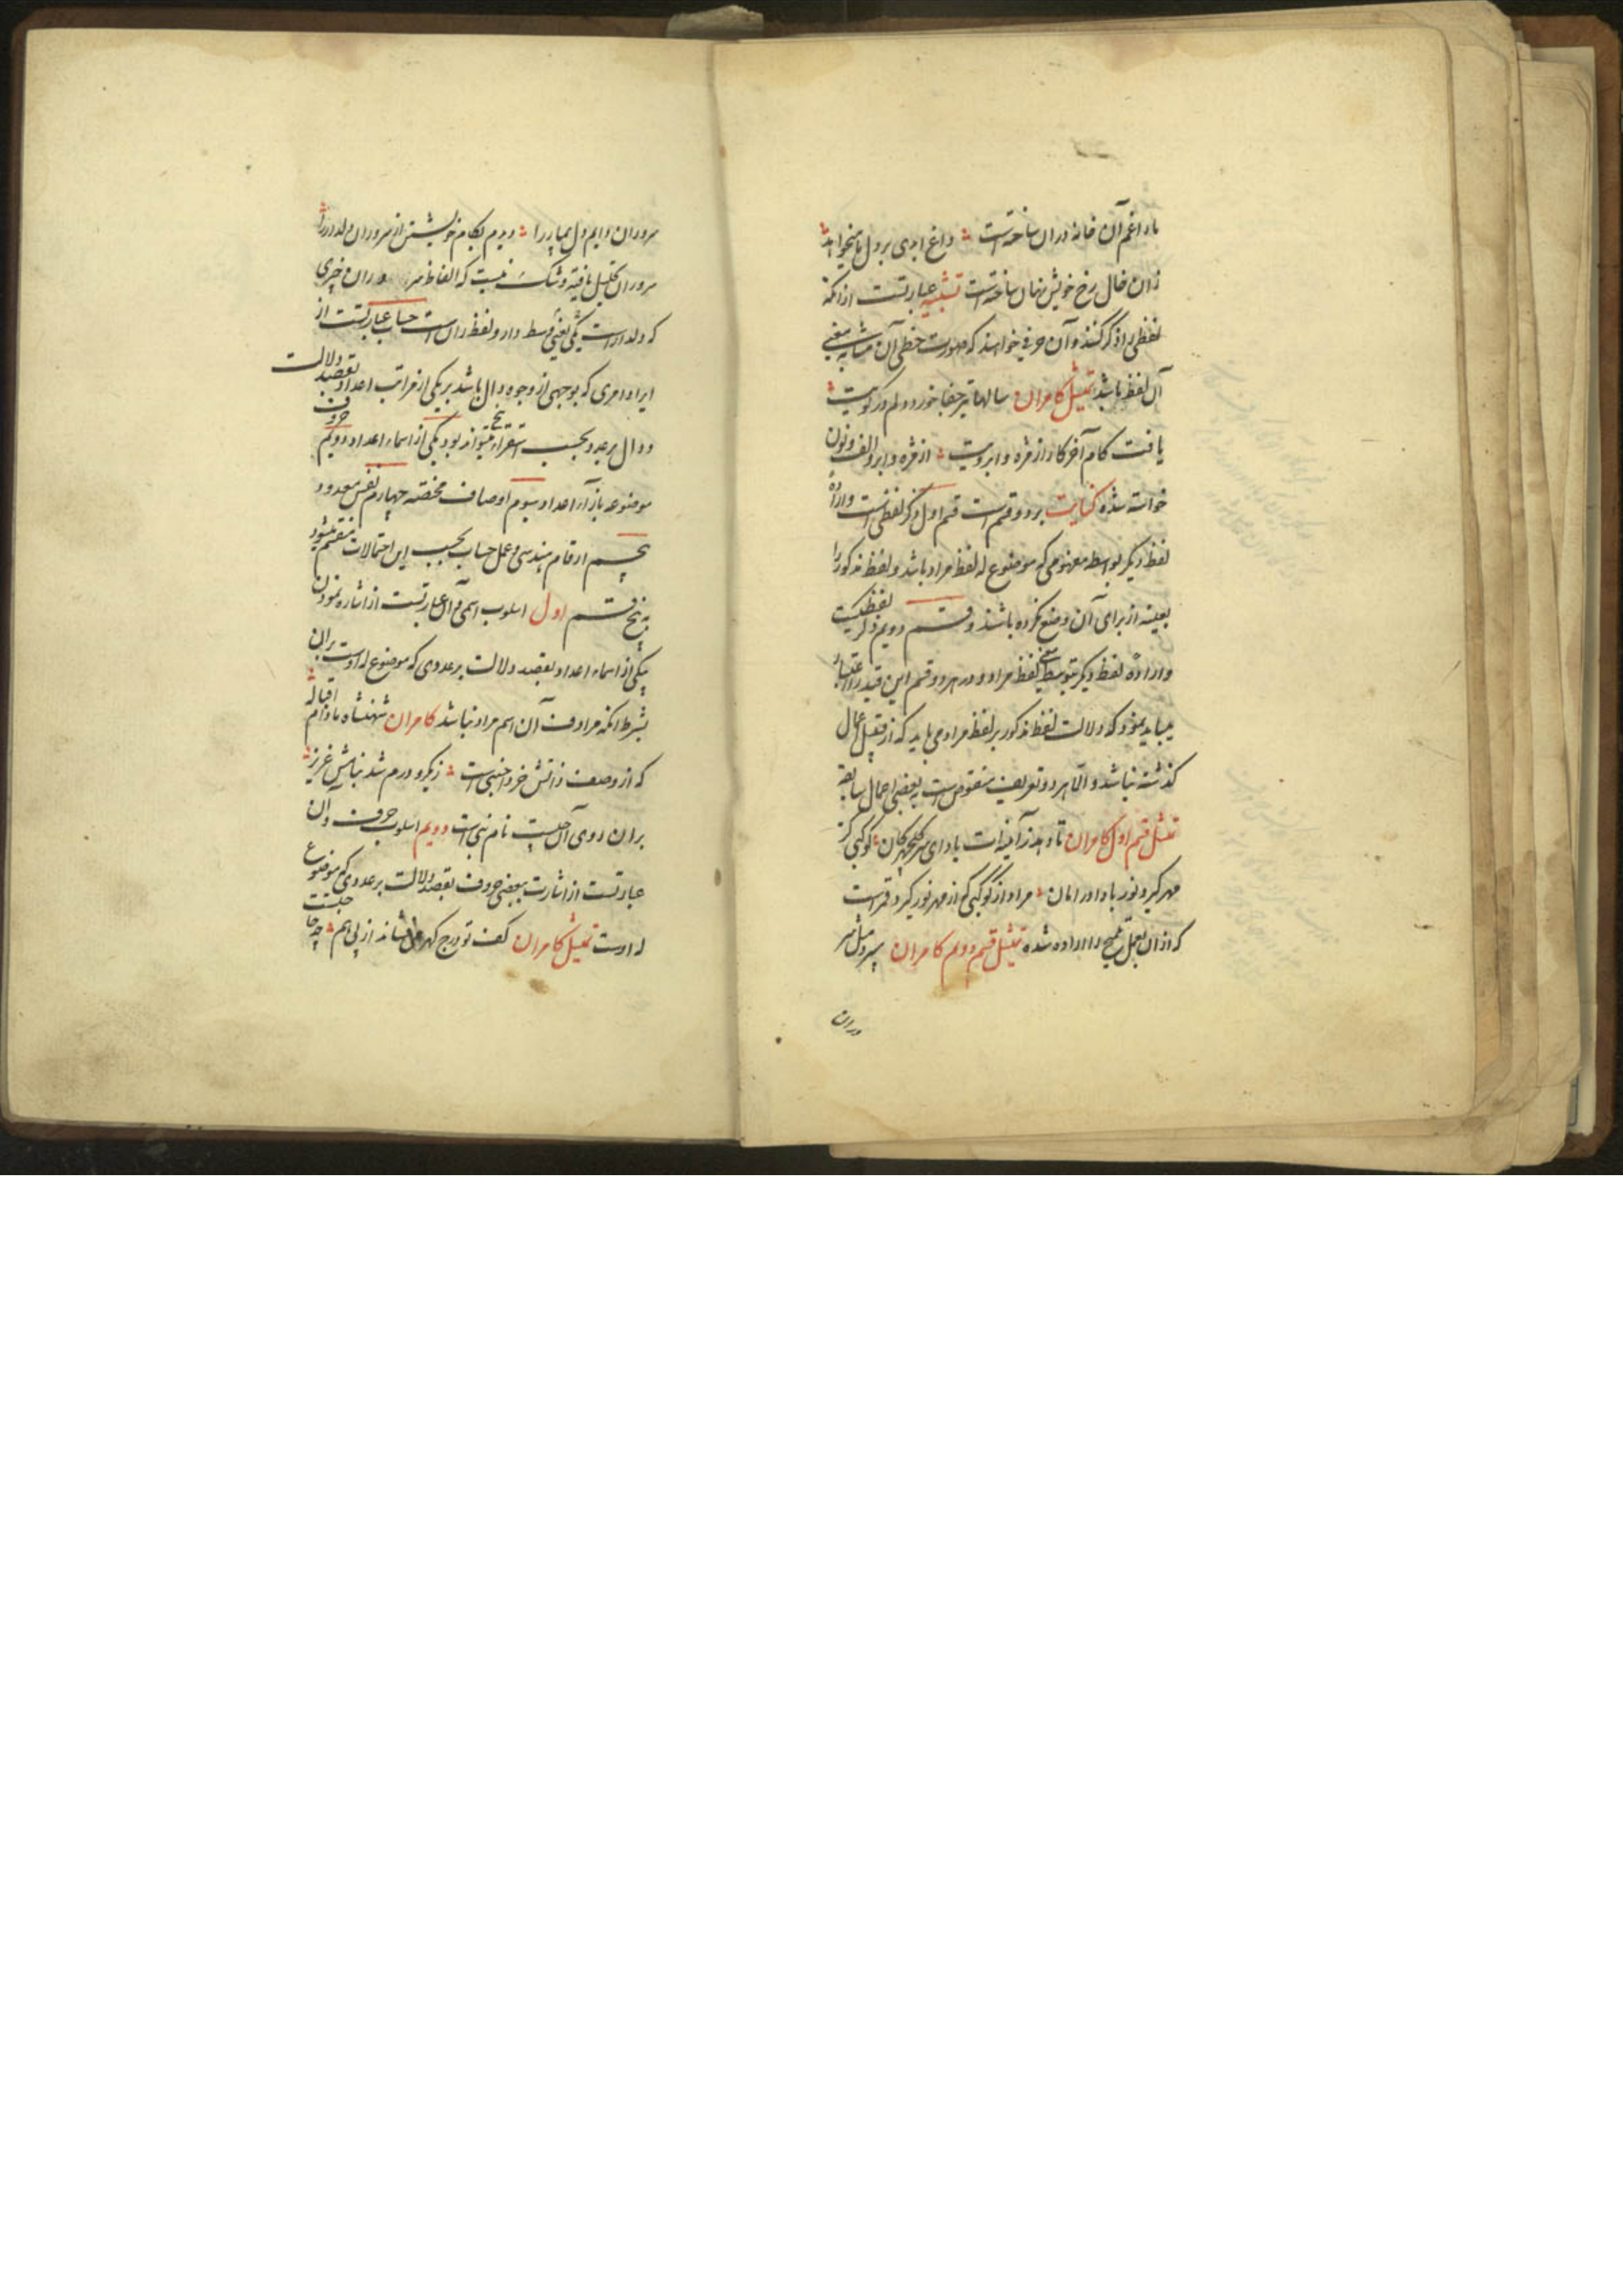 ما را غم آن خانه وران ساخته است داغ ابدی بر دل ما میخواهد
زان خال رخ خویش نهان ساخته است تشبیه عبارتست از انکه
لفظی را ذکر کنند و آن حرفی خواهند که صورت خطی آن مشابه معنی
آن لفظ باشد تمثیل کامران سالها تیر جفا خورد دلم در کویت
یافت کام آخر کار از مژه و ابرویت از مژه و ابرو الف و نون
خواسته شده کنایت بر دو قسم است قسم اول ذکر لفظی است و اراده
لفظ دیگر بواسطه مفهومی که موضوع له لفظ مراد باشد و لفظ مذکور را
بعینه از برای آن وضع نکرده باشند و قسم دویم ذکر لفظیست
و اراده لفظ دیگر بتوسط معنی لفظ مراد و در هر دو قسم این قید را اعتبار
میباید نمود که دلالت لفظ مذکور بر لفظ مراد می باید که از قبیل اعمال
گذشته نباشد و الا هر دو تعریف منقوض است به بعضی اعمال سابقه
تمثیل قسم اول کامران تا دهد ز آفات یاد ای سر کجکلهان کوکبی کز
مهر گیرد نور باد اور امان مراد از کوکبی که از مهر نور گیرد قمر است
که از ان بعمل تلمیح را اراده شده تمثیل قسم دویم کامران
وران
سروران دایم دل بیمار را دیدم بکام خویشتن از سروران دلدار را
سروران تحلیل یافته و شک نیست که الفاظ سر وران خبری
که دلدار است یکی یعنی وسط دار و لفظ ران است حساب عبارتست از
ایراد امری که بوجهی از وجوه دال باشد بر یکی از مراتب اعداد بقصد دلالت
و دال بر عدد بحسب استقراء پنج میتواند بود یکی از اسماء اعداد دویم حروف
موضوعه بازاء اعداد سیوم اوصاف مختصه چهارم نفس معدود
پنجم ارقام هندسی و عمل حساب بحسب این احتمالات منقسم میشود
به پنج قسم اول اسلوب اسمی و آن عبارتست از اشاره نمودن
بیکی از اسماء اعداد بقصد دلالت بر عددی که موضوع له اوست بران
بشرط انکه مرادف آن اسم مراد نباشد کامران شهنشاه مادام اقباله
که از وصف ذاتش خرد اجنبی است زیکرو درم شد بنامش عزیز
بران روی آن چیست نام نبی است دویم اسلوب حرفی و آن
عبارتست از اشارت ببعضی حروف بقصد دلالت بر عددی که موضوع
له اوست تمثیل کامران کف تو درج گهر فشاند از پی هم چه حاجتست